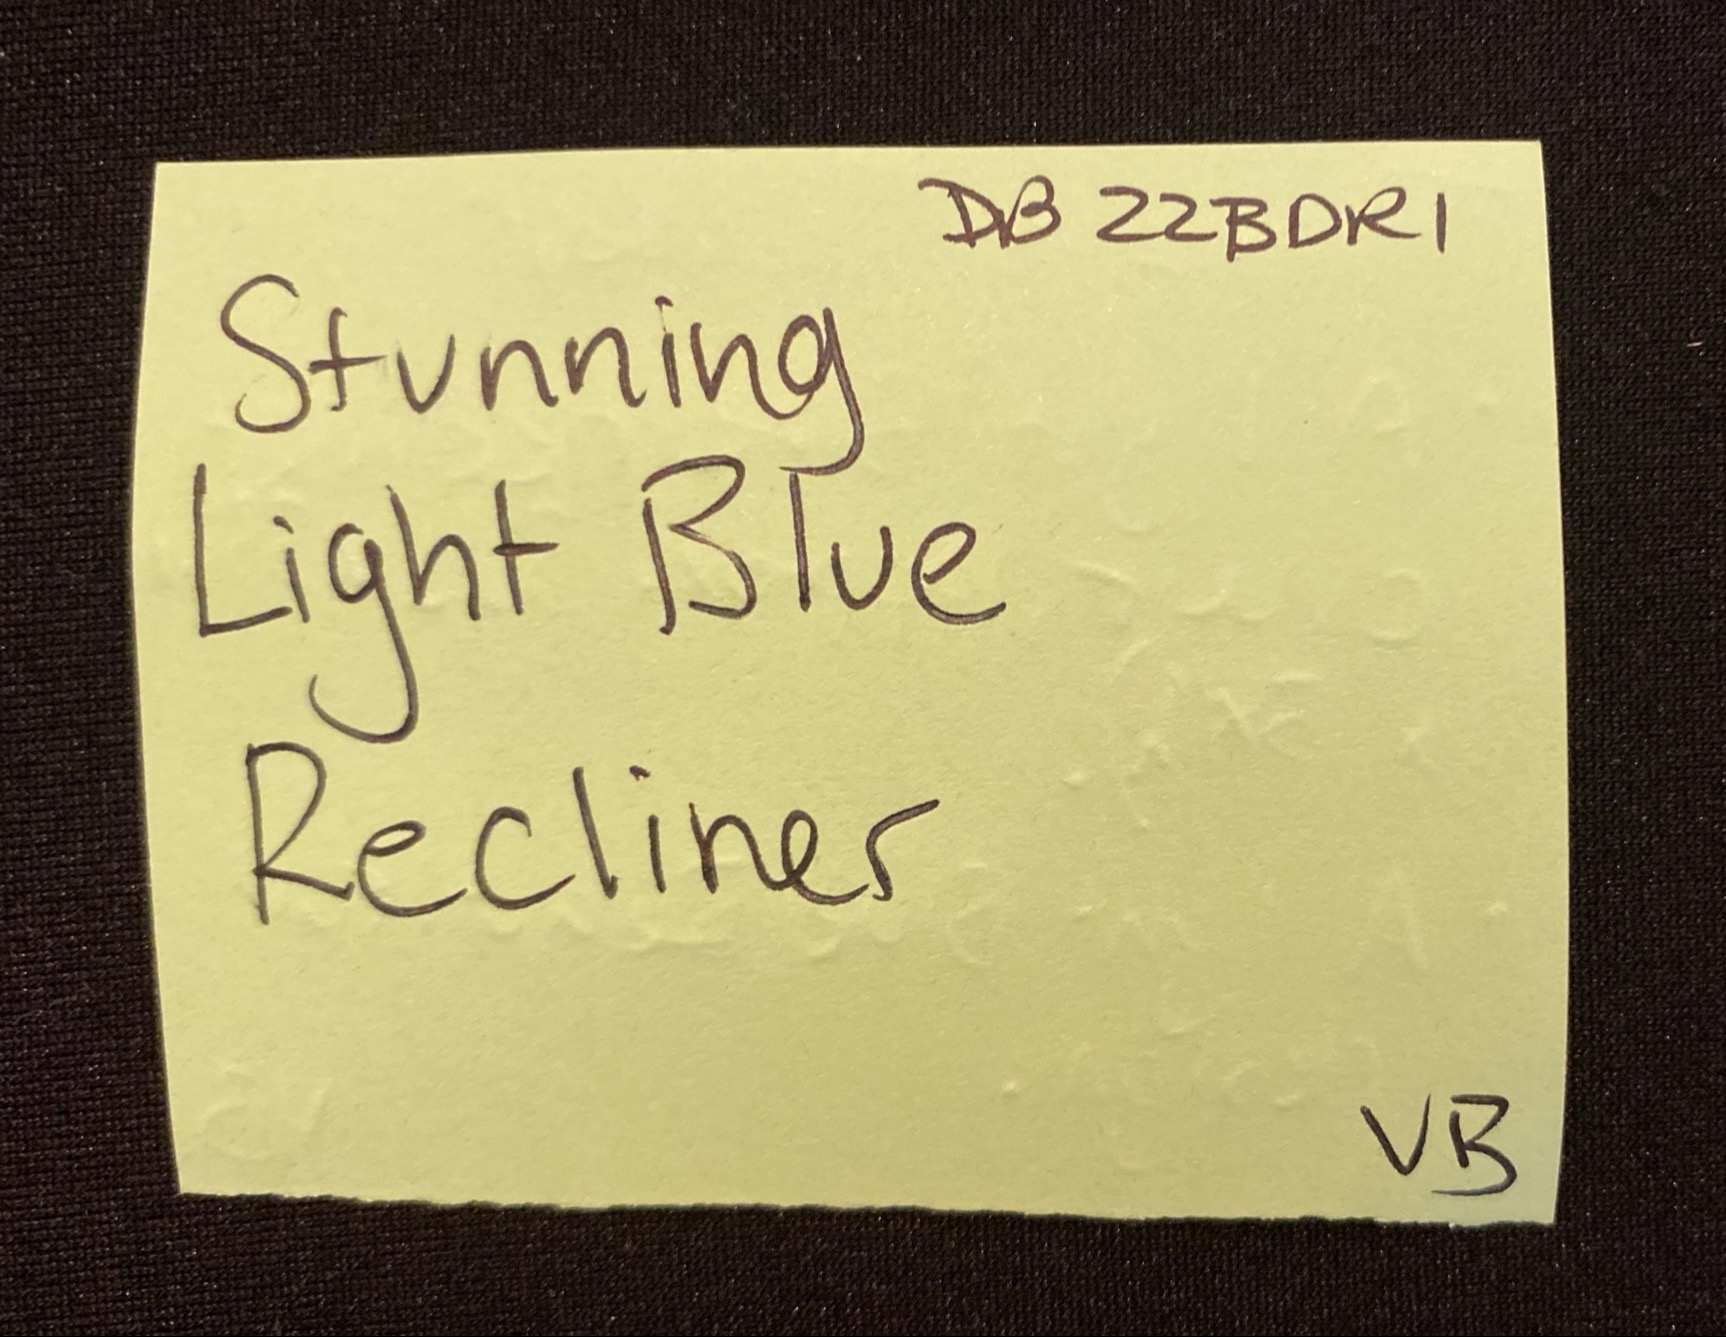 DB 22BDR1
Stunning
Light Blue
Recliner
VB